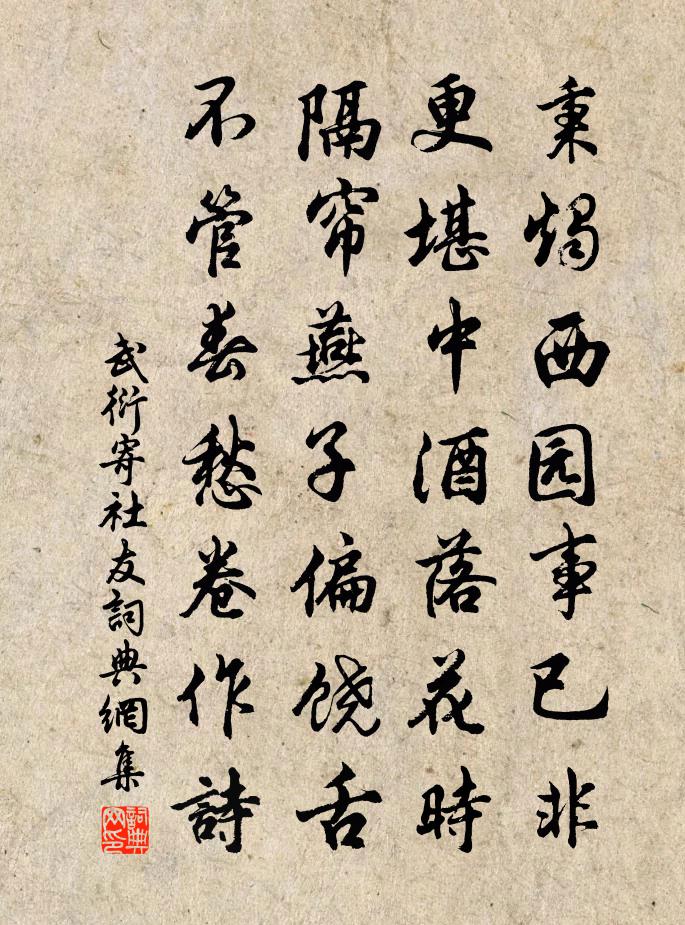 秉烛西园事已非
更堪中酒落花時
隔帘燕子偏饶舌
不管春愁卷作詩
武衍寄社友詞典網集
詞典网印